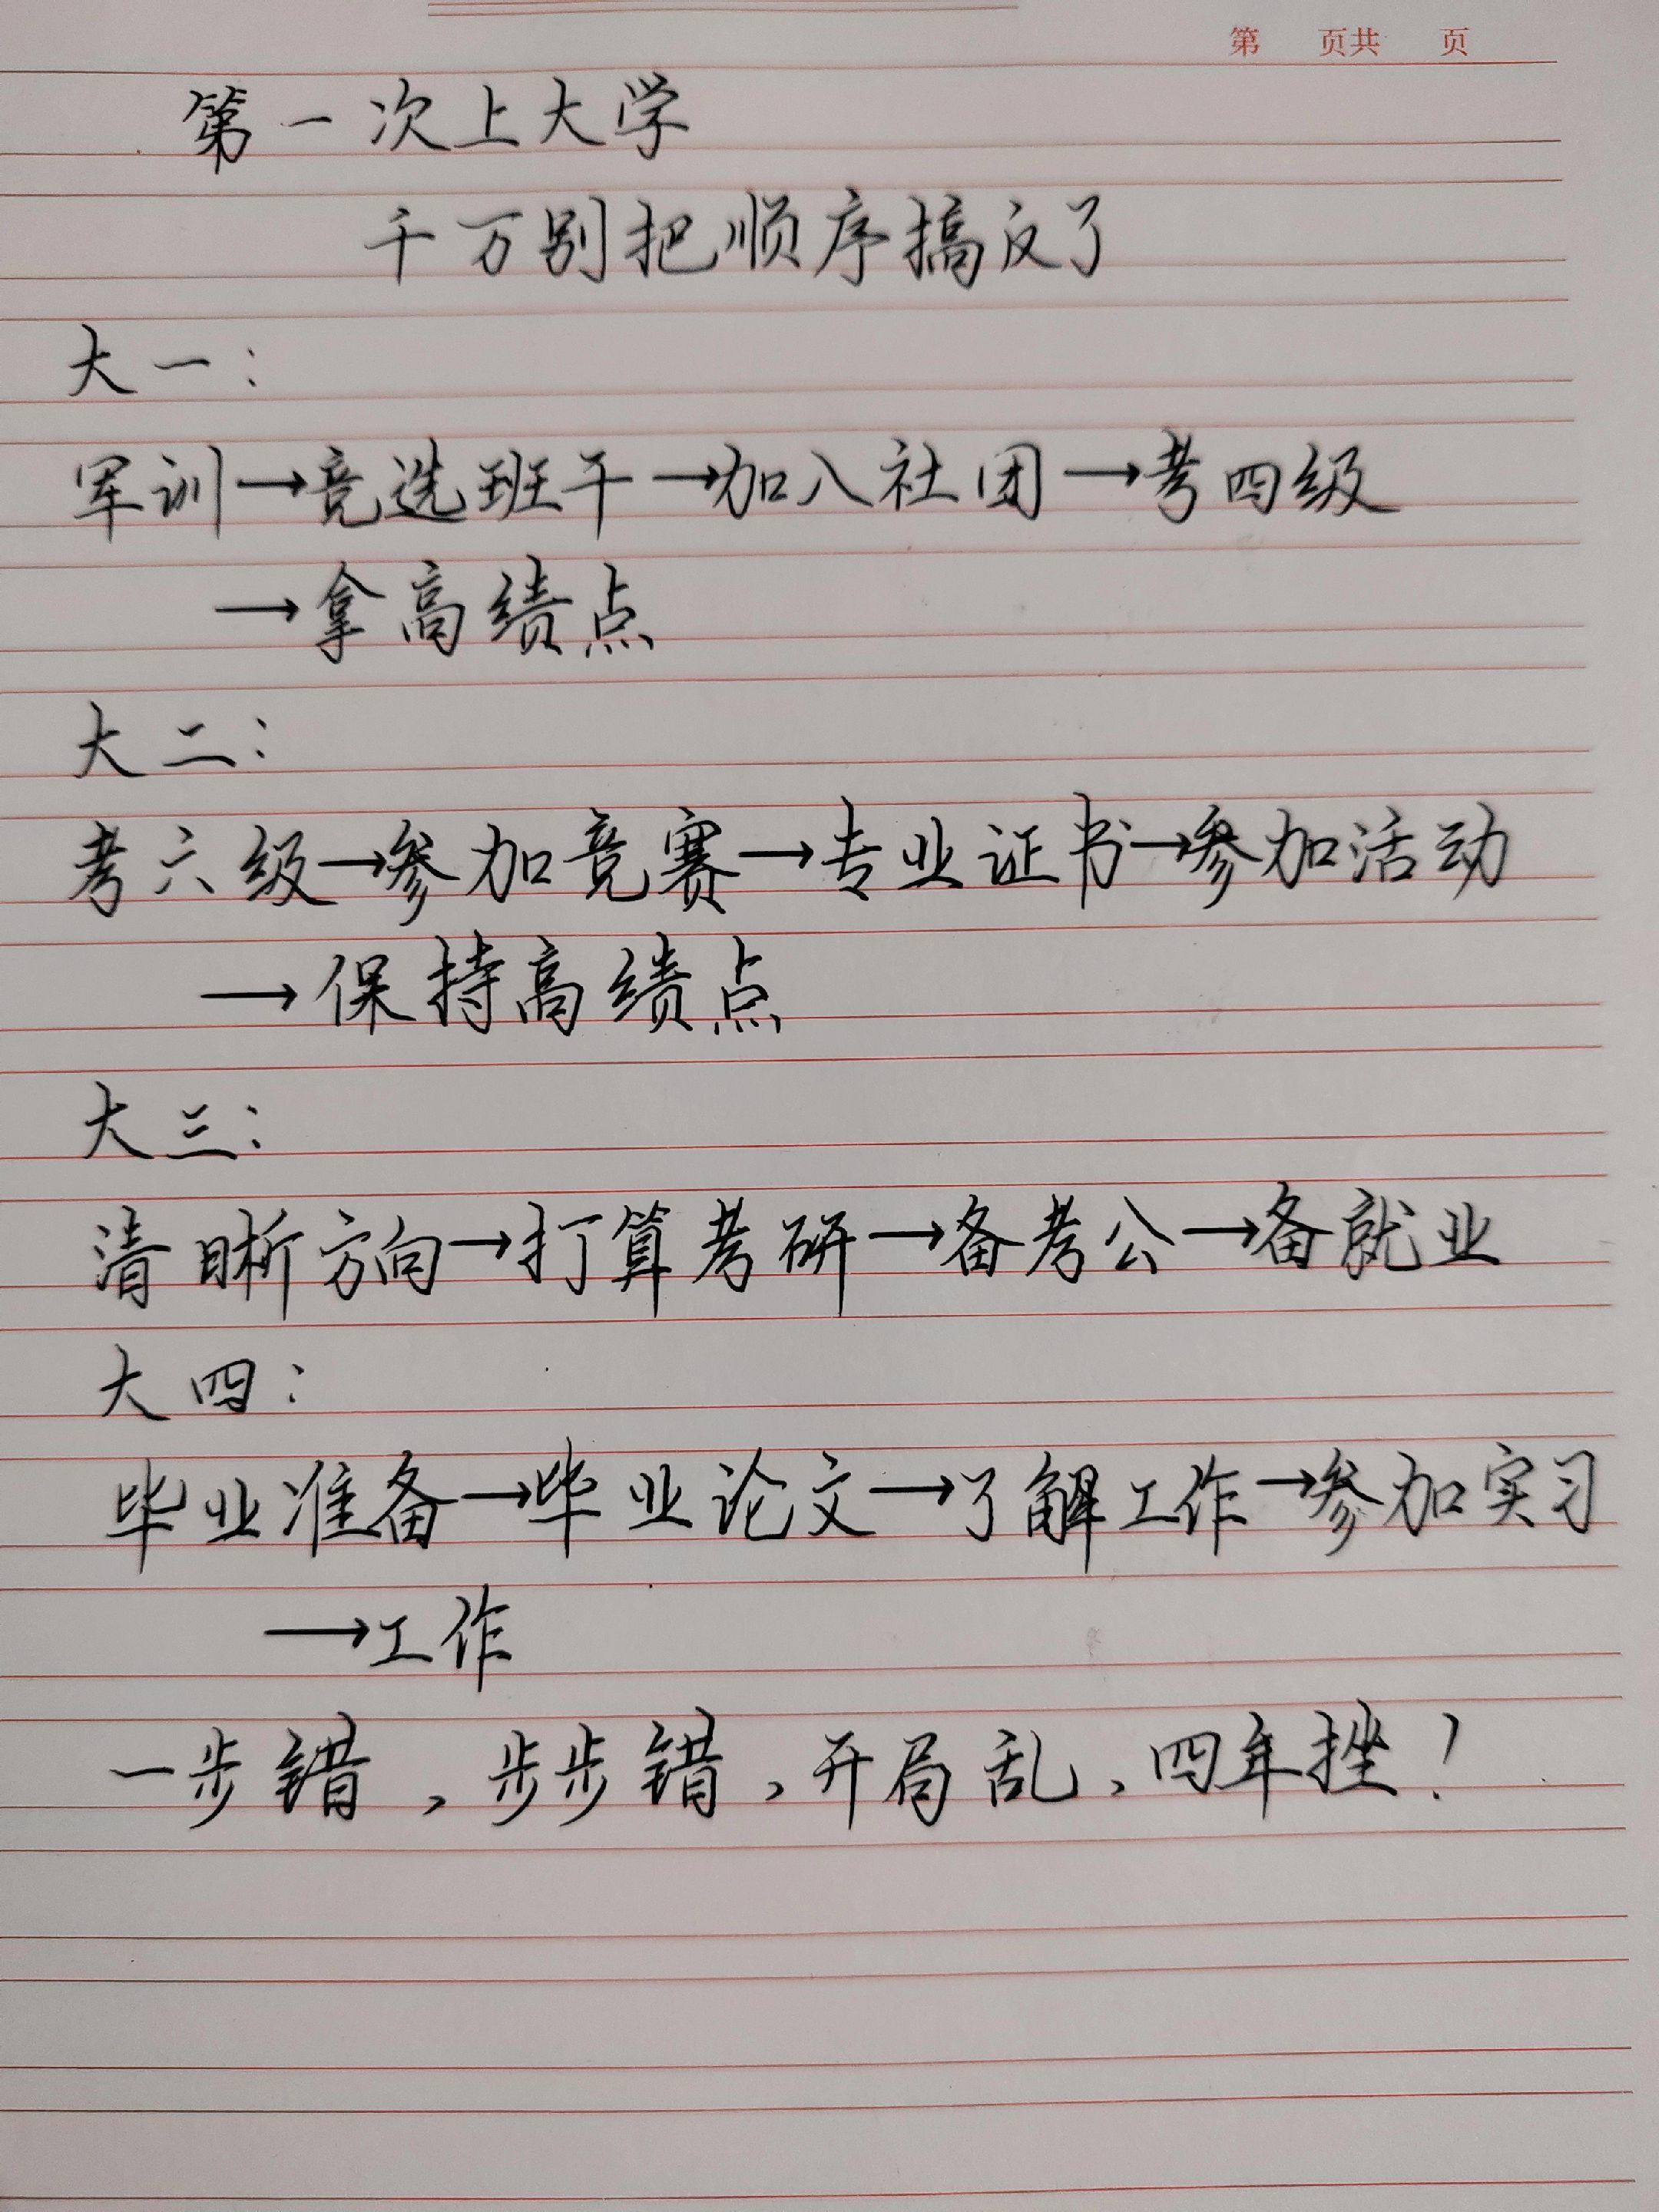 第 页共 页
第一次上大学
千万别把顺序搞反了
大一：
军训→竞选班干→加入社团→考四级
→拿高绩点
大二：
考六级→参加竞赛→专业证书→参加活动
→保持高绩点
大三：
清晰方向→打算考研→备考公→备就业
大四：
毕业准备→毕业论文→了解工作→参加实习
→工作
一步错，步步错，开局乱，四年挫！